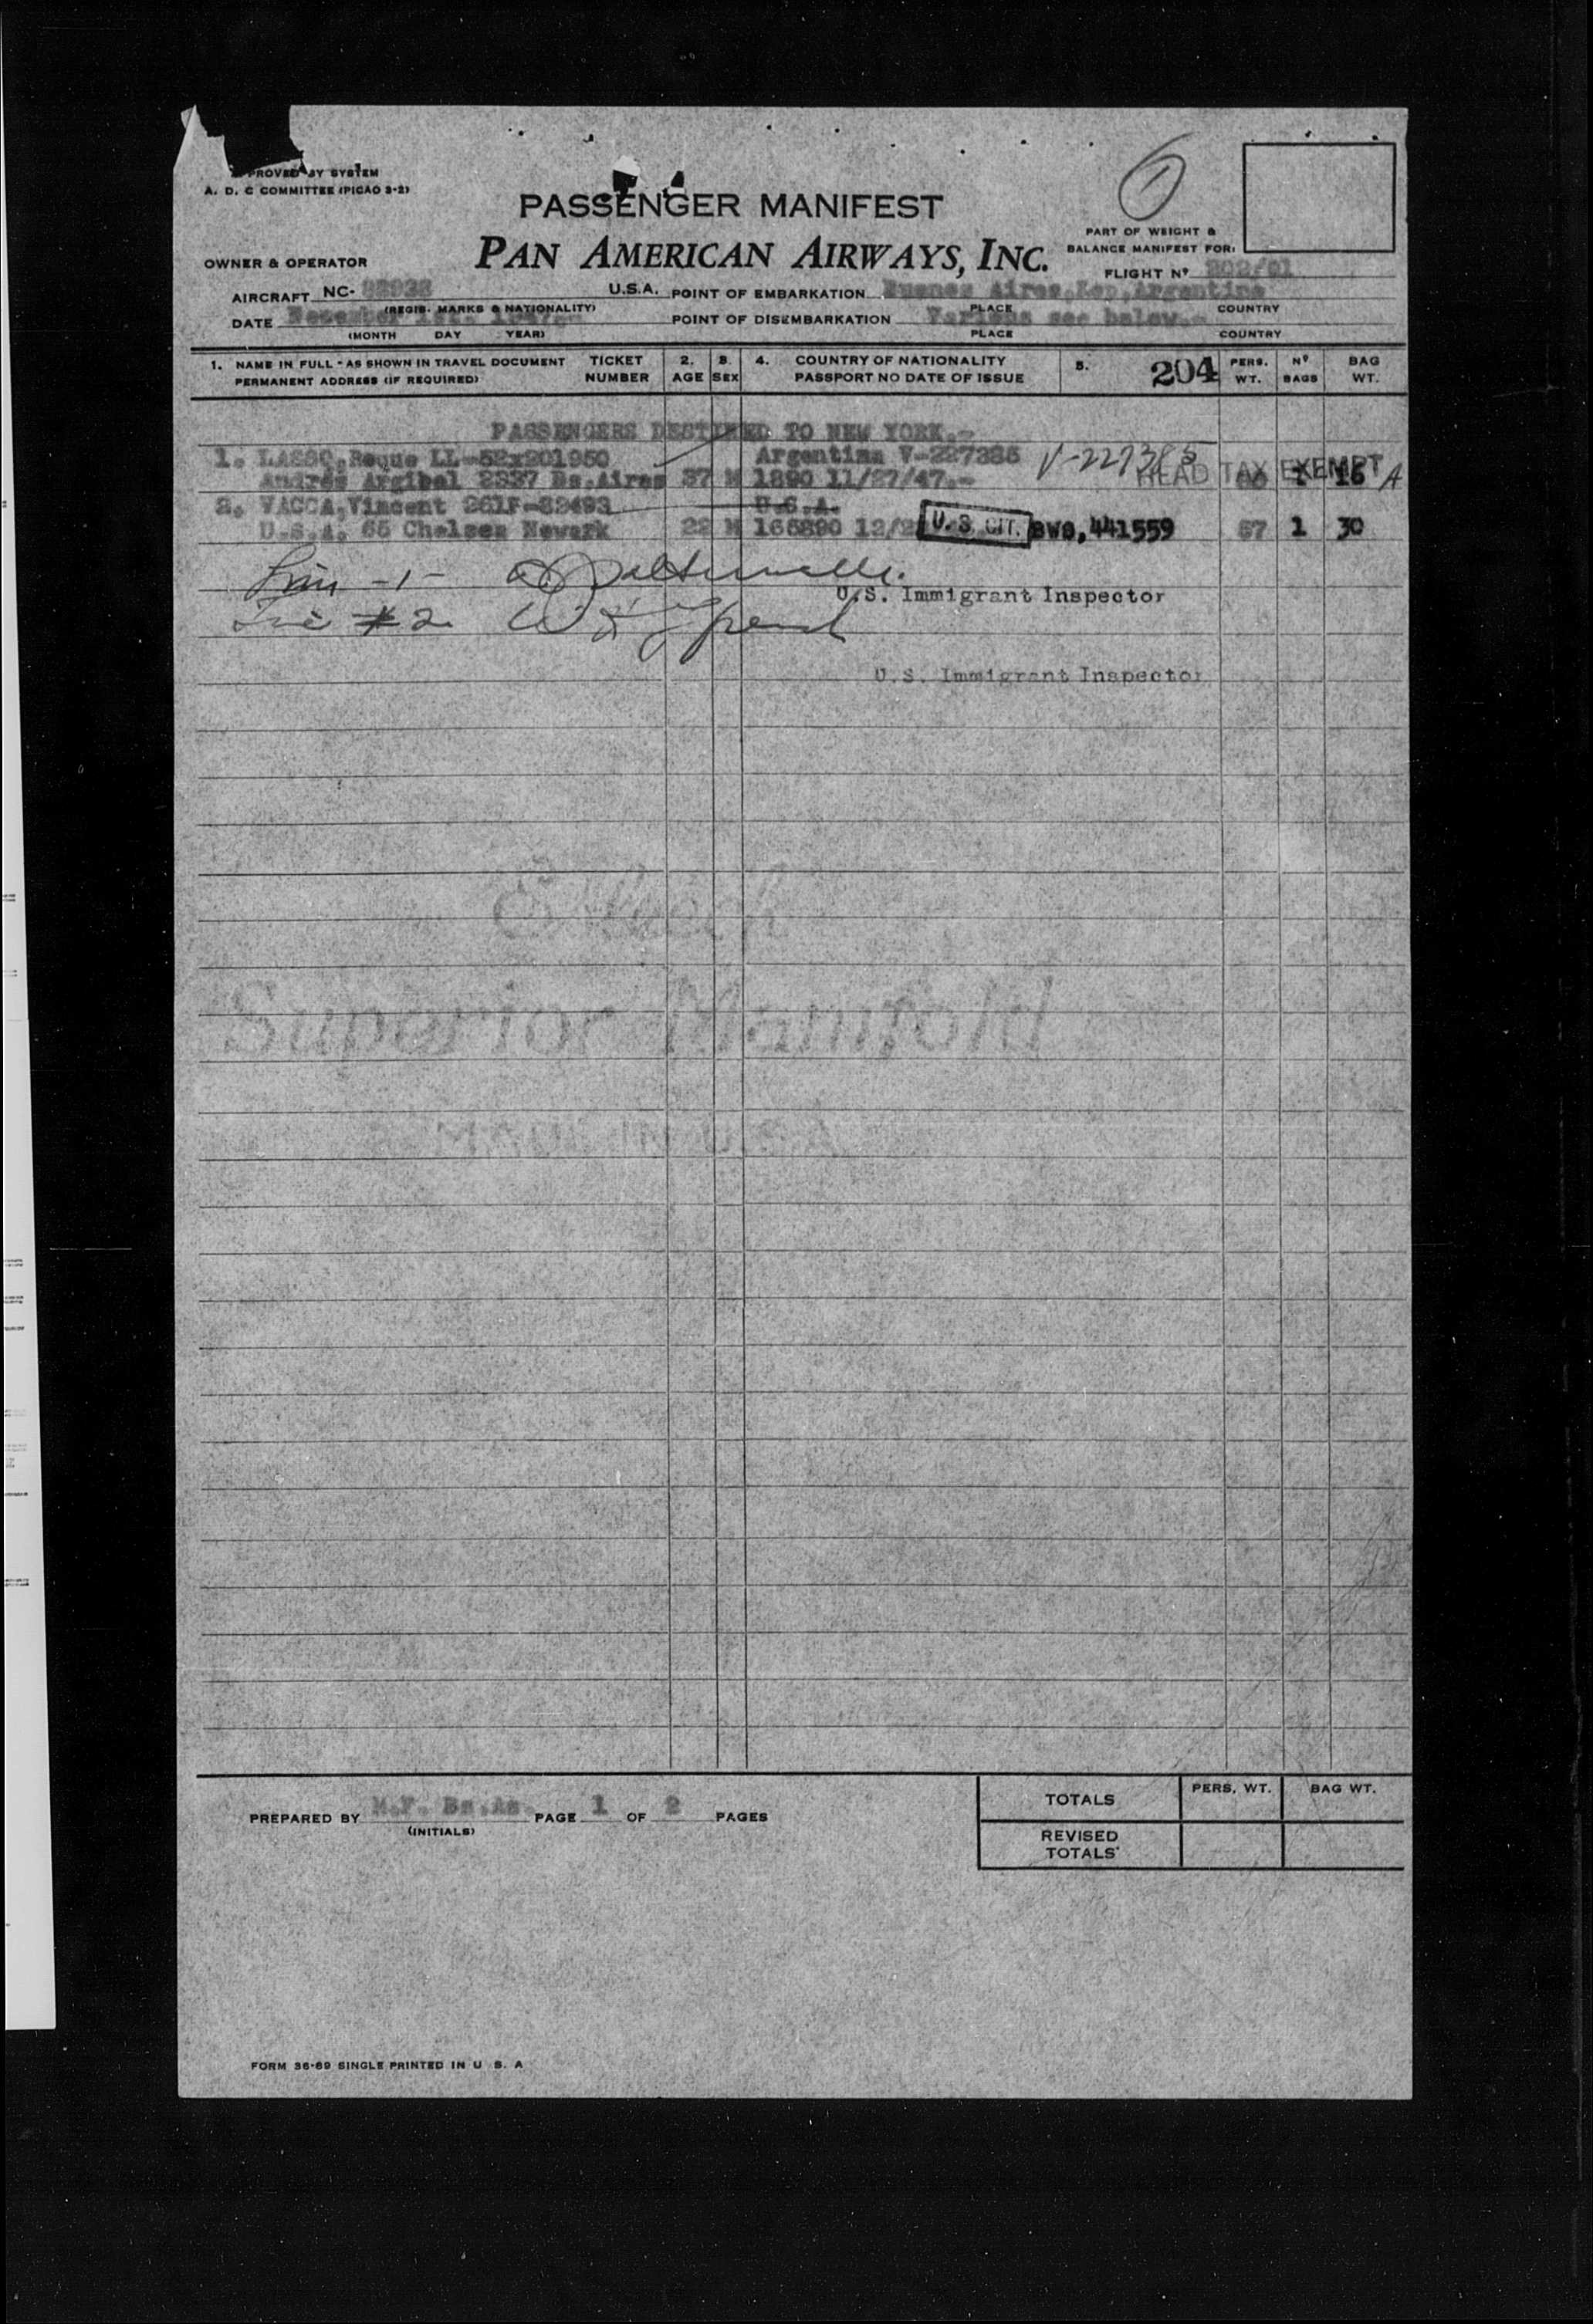 PROVED BY SYSTEM
A. D. C COMMITTEE (PICAO 3-2)
PASSENGER MANIFEST
PAN AMERICAN AIRWAYS, INC.
PART OF WEIGHT &
BALANCE MANIFEST FOR:
OWNER & OPERATOR
FLIGHT Nº 202/01
AIRCRAFT NC- U.S.A. POINT OF EMBARKATION Buenos Aires, Rep, Argentina
(REGIS. MARKS & NATIONALITY) PLACE COUNTRY
DATE POINT OF DISEMBARKATION Various see below.-
(MONTH DAY YEAR) PLACE COUNTRY
1. NAME IN FULL - AS SHOWN IN TRAVEL DOCUMENT TICKET 2. 3. 4. COUNTRY OF NATIONALITY 5. 204 PERS. Nº BAG
PERMANENT ADDRESS (IF REQUIRED) NUMBER AGE SEX PASSPORT NO DATE OF ISSUE WT. BAGS WT.
PASSENGERS DESTINED TO NEW YORK.-
1. LASSO, Roque LL-52x201950 Argentina V-227385 V-227385
Andres Argibel 2337 Bs.Aires 37 M 1890 11/27/47.- HEAD TAX EXEMPT 1 16 A
2. VACCA, Vincent 261F-82493 U.S.A.
U.S.A. 65 Chelsea Newark 22 M 165890 12/2 U.S. CIT. BWS, 441559 67 1 30
Lin -1-
U.S. Immigrant Inspector
#2
U.S. Immigrant Inspector
Superior Manifold
MADE IN U.S.A.
PREPARED BY M.F. Bs.As. PAGE 1 OF 2 PAGES
(INITIALS)
TOTALS PERS. WT. BAG WT.
REVISED
TOTALS
FORM 36-69 SINGLE PRINTED IN U S. A